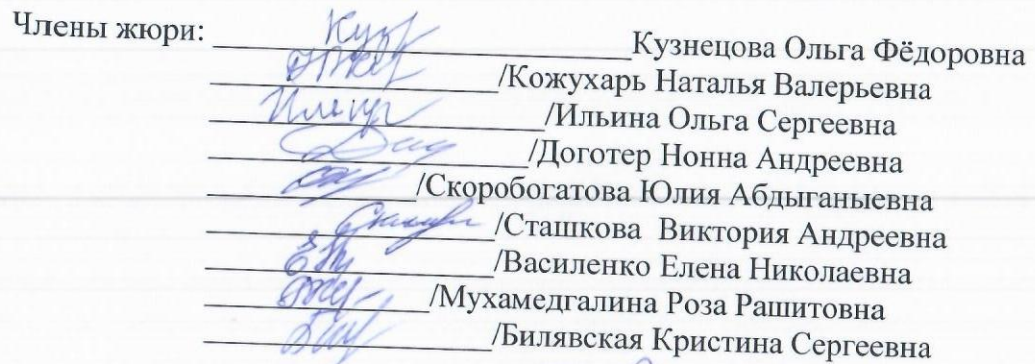 Члены жюри: Кузнецова Ольга Фёдоровна
/Кожухарь Наталья Валерьевна
/Ильина Ольга Сергеевна
/Доготер Нонна Андреевна
/Скоробогатова Юлия Абдыганыевна
/Сташкова Виктория Андреевна
/Василенко Елена Николаевна
/Мухамедгалина Роза Рашитовна
/Билявская Кристина Сергеевна